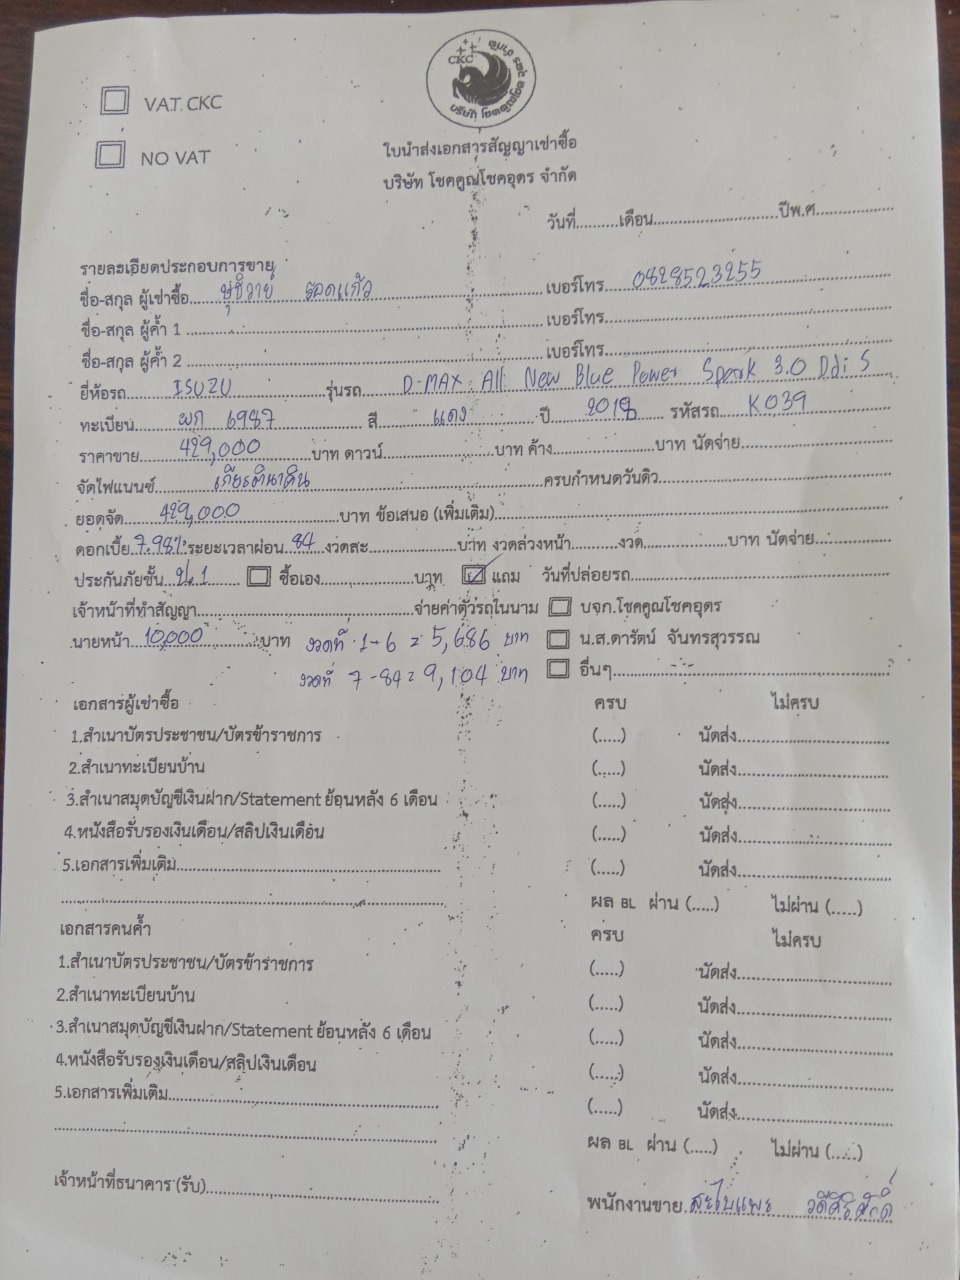 CKC
VAT. CKC
NO VAT
ใบนำส่งเอกสารสัญญาเช่าซื้อ
บริษัท โชคคูณโชคอุดร จำกัด
วันที่..........เดือน..............................ปีพ.ศ..................
รายละเอียดประกอบการขาย
ชื่อ-สกุล ผู้เช่าซื้อ.......... ยอดแก้ว ..........เบอร์โทร. 0828523255
ชื่อ-สกุล ผู้ค้ำ 1 ..............................เบอร์โทร..............................
ชื่อ-สกุล ผู้ค้ำ 2 ..............................เบอร์โทร..............................
ยี่ห้อรถ.......ISUZU..........รุ่นรถ.......D-MAX All New Blue Power Spark 3.0 Ddi S
ทะเบียน.......ผก 6987.......... สี.......แดง..........ปี.....2018..... รหัสรถ....K039
ราคาขาย.....429,000..........บาท ดาวน์....................บาท ค้าง....................บาท นัดจ่าย....................
จัดไฟแนนซ์..........เกียรตินาคิน..........ครบกำหนดวันดิว....................
ยอดจัด.....429,000..........บาท ข้อเสนอ (เพิ่มเติม)..............................
ดอกเบี้ย 7.98% ระยะเวลาผ่อน 84 งวดสะ....................บาท งวดล่วงหน้า..........งวด....................บาท นัดจ่าย....................
ประกันภัยชั้น ป.1 .......... ซื้อเอง....................บาท แถม วันที่ปล่อยรถ..............................
เจ้าหน้าที่ทำสัญญา..............................จ่ายค่าตัวรถในนาม บจก.โชคคูณโชคอุดร
นายหน้า..10,000..........บาท งวดที่ 1-6 = 5,686 บาท น.ส.ดารัตน์ จันทรสุวรรณ
งวดที่ 7-84 = 9,104 บาท อื่นๆ..............................
เอกสารผู้เช่าซื้อ ครบ ไม่ครบ
1.สำเนาบัตรประชาชน/บัตรข้าราชการ (.....) นัดส่ง..............................
2.สำเนาทะเบียนบ้าน (.....) นัดส่ง..............................
3.สำเนาสมุดบัญชีเงินฝาก/Statement ย้อนหลัง 6 เดือน (.....) นัดส่ง..............................
4.หนังสือรับรองเงินเดือน/สลิปเงินเดือน (.....) นัดส่ง..............................
5.เอกสารเพิ่มเติม.............................. (.....) นัดส่ง..............................
.............................. ผล BL ผ่าน (.....) ไม่ผ่าน (.....)
เอกสารคนค้ำ ครบ ไม่ครบ
1.สำเนาบัตรประชาชน/บัตรข้าราชการ (.....) นัดส่ง..............................
2.สำเนาทะเบียนบ้าน (.....) นัดส่ง..............................
3.สำเนาสมุดบัญชีเงินฝาก/Statement ย้อนหลัง 6 เดือน (.....) นัดส่ง..............................
4.หนังสือรับรองเงินเดือน/สลิปเงินเดือน (.....) นัดส่ง..............................
5.เอกสารเพิ่มเติม.............................. (.....) นัดส่ง..............................
.............................. ผล BL ผ่าน (.....) ไม่ผ่าน (.....)
เจ้าหน้าที่ธนาคาร (รับ)..............................
พนักงานขาย.